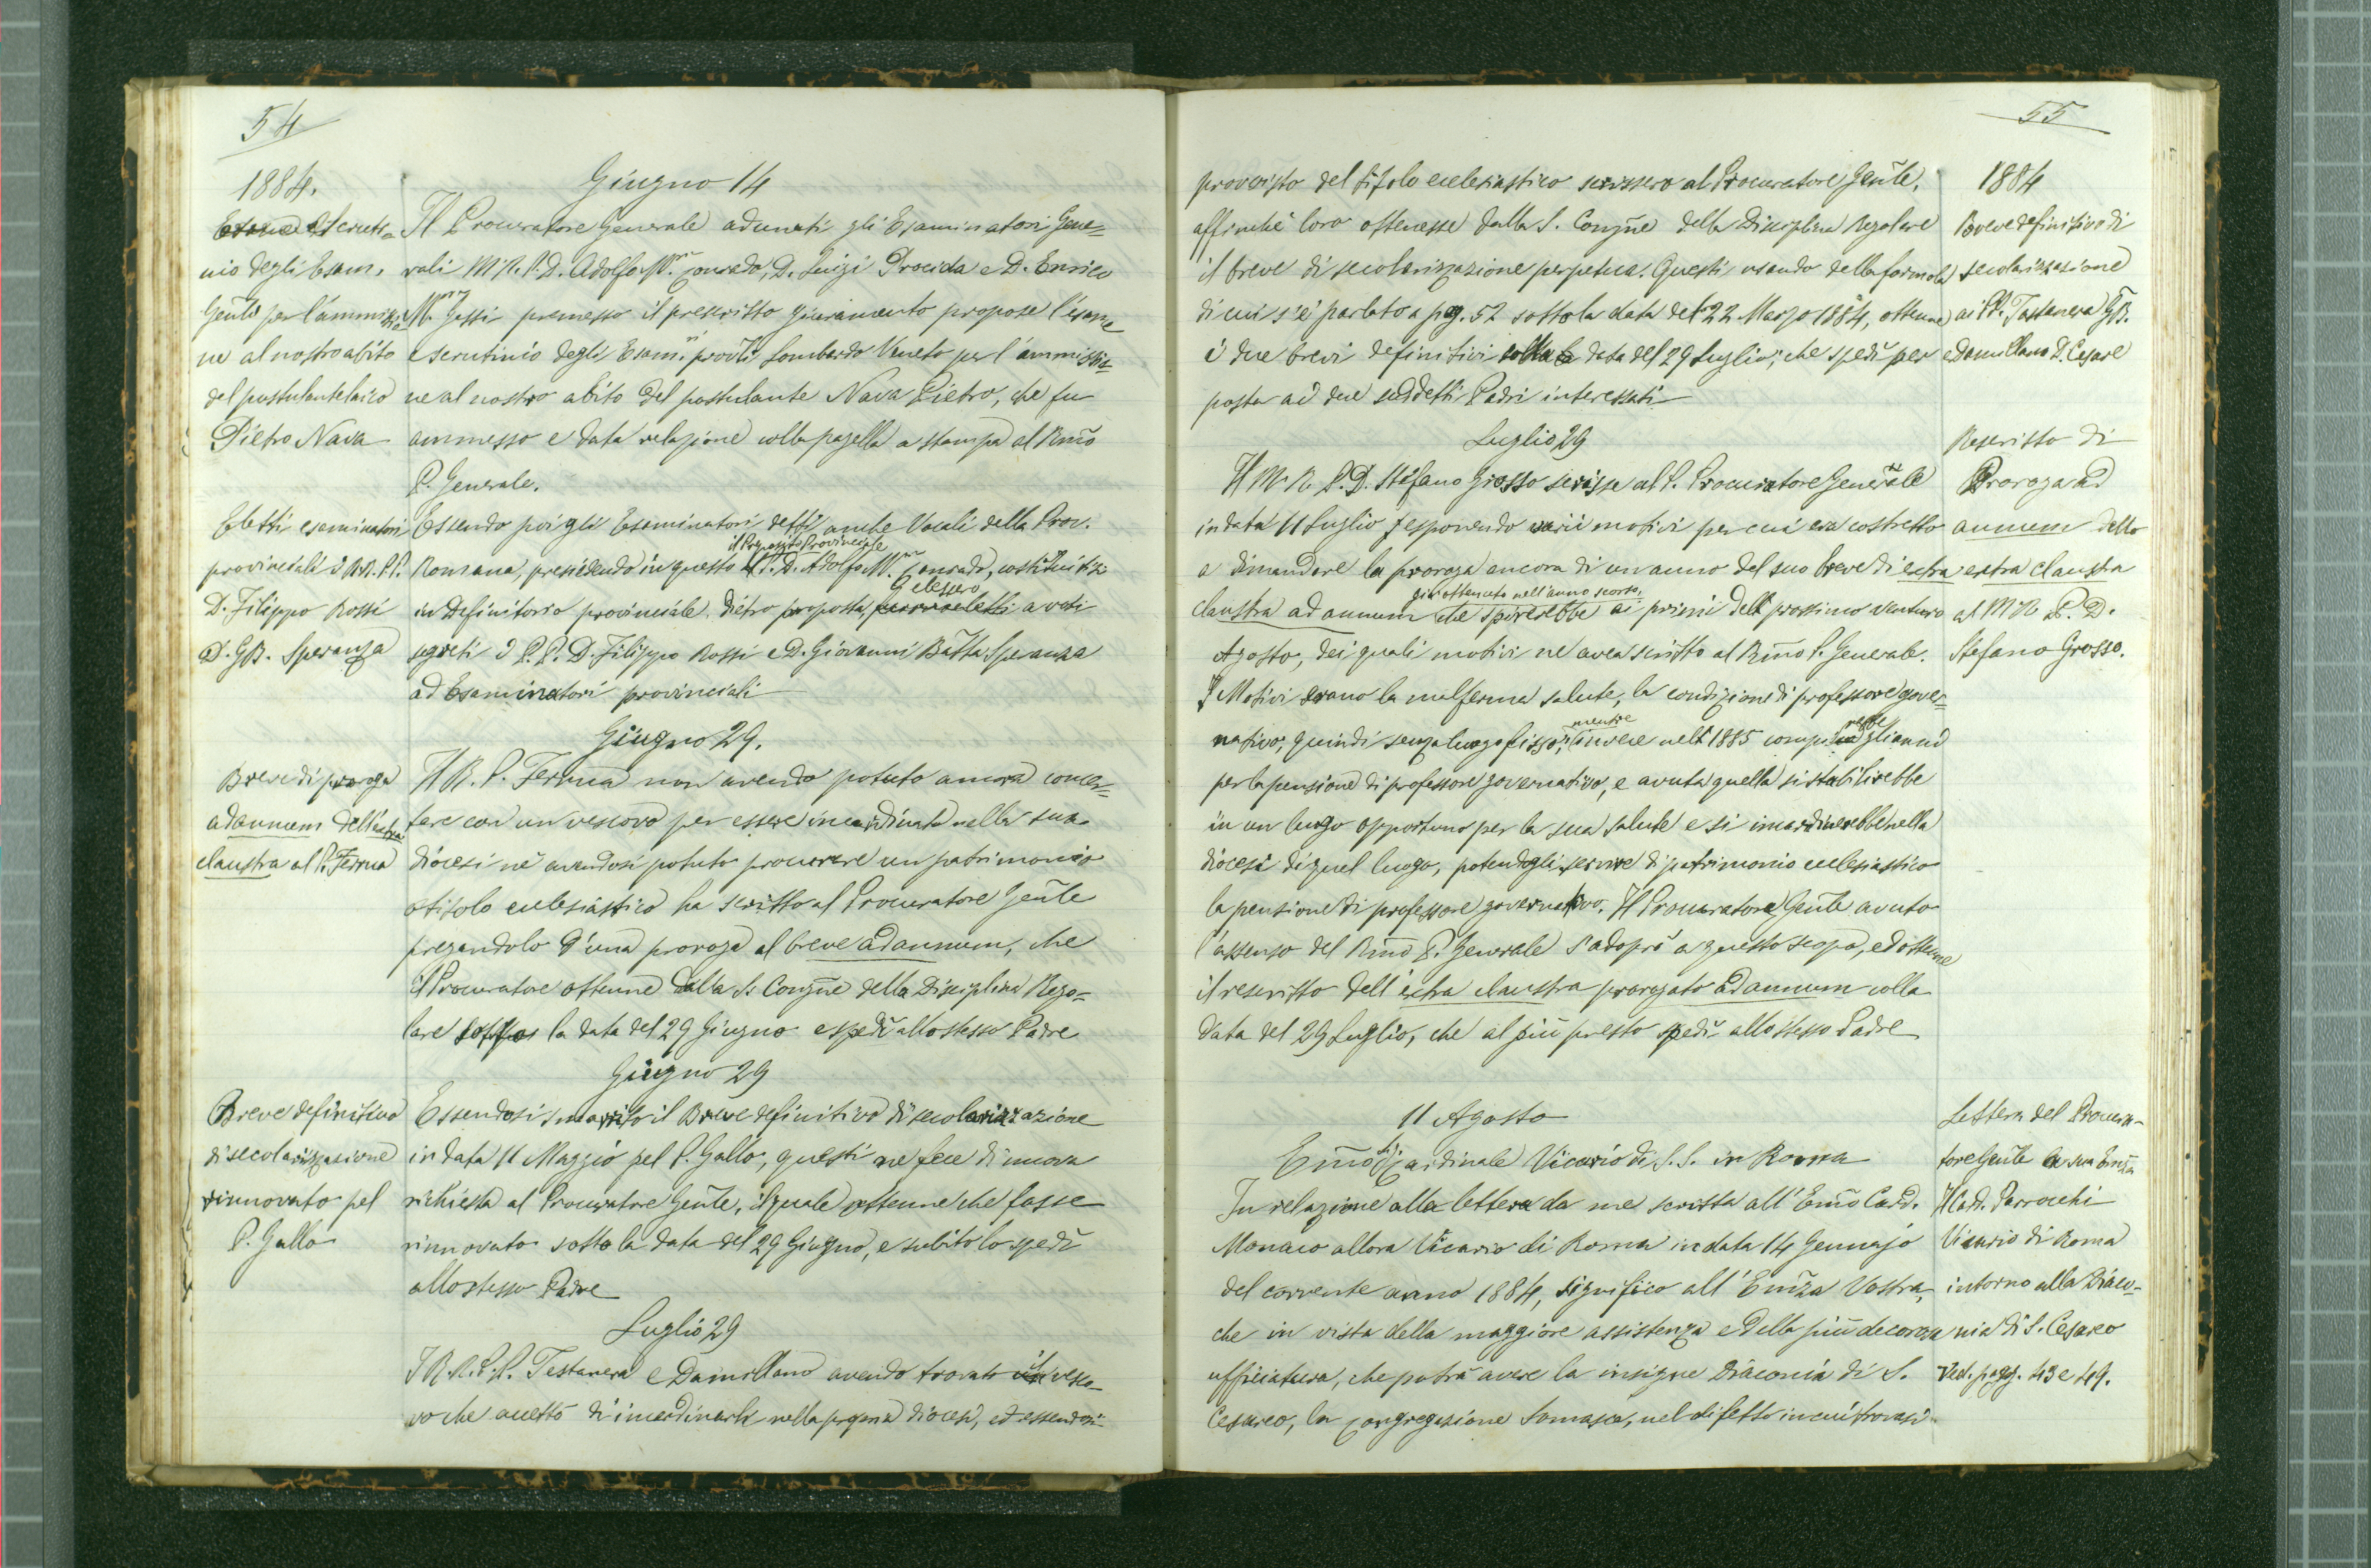 54
1884.
Giugno 14
Esame e Scruti-
nio degli Esam.
Gen̄li per l'ammissio
ne al nostro abito
del postulante laico
Pietro Nava
Il Procuratore Generale adunati gli Esaminatori Gene=
rali M. R. P. D. Adolfo M.ª Conrado, D. Luigi Procida e D. Enrico
M.ª Gessi premesso il prescritto giuramento propose l'esame
e scrutinio degli Esam.ⁱ prov̄li Lombardo Veneto per l'ammissio=
ne al nostro abito del postulante Nava Pietro, che fu
ammesso e data relazione colla pagella a stampa al Rm̄o
P. Generale.
Eletti esaminatori
provinciali i RR. PP.
D. Filippo Rossi
D. GB. Speranza
Essendo poi gli Esaminatori detti anche Vocali della Prov.
il Preposito Provinciale
Romana, presidendo in questo il P. D. Adolfo M. Conrado, costituitisi
elessero
in Definitorio provinciale dietro proposta, furono eletti a voti
segreti i P. P. D. Filippo Rossi e D. Giovanni Batt̄a Speranza
ad Esaminatori provinciali
Giugno 29.
Breve di proroga
ad annum dell'extra
claustra al P. Ferma
Il R. P. Ferma non avendo potuto ancora concer=
tare con un vescovo per essere incardinato nella sua
diocesi nè avendosi potuto procurare un patrimonio
o titolo ecclesiastico ha scritto al Procuratore Gen̄le
pregandolo d'una proroga al breve ad annum, che
il Procuratore ottenne dalla S. Congn̄e della Disciplina Rego=
lare sotto la data del 29 Giugno e spedì allo stesso Padre
Giugno 29
Breve definitivo
di secolarizzazione
rinnovato pel
P. Gallo
Essendosi smarrito il Breve definitivo di secolarizzazione
in data 11 Maggio pel P. Gallo, questi ne fece di nuova
richiesta al Procuratore Gen̄le, il quale ottenne che fosse
rinnovato sotto la data del 29 Giugno, e subito lo spedì
allo stesso Padre
Luglio 29
I R. R. P. P. Testanera e Damillano avendo trovato il vesco-
vo che accettò di incardinarli nella propria diocesi, ed essendosi
55
1884
provvisto del titolo ecclesiastico scrissero al Procuratore Gen̄le,
affinchè loro ottenesse dalla S. Congn̄e della Disciplina Regolare
il breve di secolarizzazione perpetua. Questi usando della formola
di cui s'è parlato a pag. 52 sotto la data del 22 Marzo 1884, ottenne
i due brevi definitivi sotto la data del 29 Luglio, che spedì per
posta ai due suddetti Padri interessati
Breve definitivo di
secolarizzazione
ai PP. Testanera GB.
e Damillano D. Cesare
Luglio 29
Rescritto di
Proroga ad
annum dello
extra claustra
al M. R. P. D.
Stefano Grosso.
Il M. R. P. D. Stefano Grosso scrisse al P. Procuratore Generale
in data 11 Luglio esponendo varii motivi per cui era costretto
a dimandare la proroga ancora di un anno del suo breve di extra
già ottenuto nell'anno scorso,
claustra ad annum che spirerebbe ai primi del prossimo venturo
Agosto, dei quali motivi ne avea scritto al Rm̄o P. Generale.
I Motivi erano la malferma salute, la condizione di professore gover=
mentre
nativo, quindi senza luogo fisso; invece nell 1885 compirebbe gli anni
per la pensione di professore governativo, e avuta quella si stabilirebbe
in un luogo opportuno per la sua salute e si incardinerebbe nella
diocesi di quel luogo, potendogli servire di patrimonio ecclesiastico
la pensione di professore governativo. Il Procuratore Gen̄le avuto
l'assenso del Rm̄o P. Generale s'adoprò a questo scopo, ed ottenne
il rescritto dell'extra claustra prorogato ad annum colla
data del 29 Luglio, che al più presto spedì allo stesso Padre
11 Agosto
Lettera del Procura-
tore Gen̄le a sua Em̄za
il Card. Parrocchi
Vicario di Roma
intorno alla Diaco-
nia di S. Cesareo
Ved. pagg. 43 e 49.
Em̄o Sig. Cardinale Vicario di S. S. in Roma
In relazione alla lettera da me scritta all'Em̄o Card.
Monaco allora Vicario di Roma in data 14 Gennajo
del corrente anno 1884, significo all'Em̄za Vostra,
che in vista della maggiore assistenza e della più decorosa
ufficiatura, che potrà avere la insigne Diaconia di S.
Cesareo, la Congregazione Somasca, nel difetto in cui trovasi